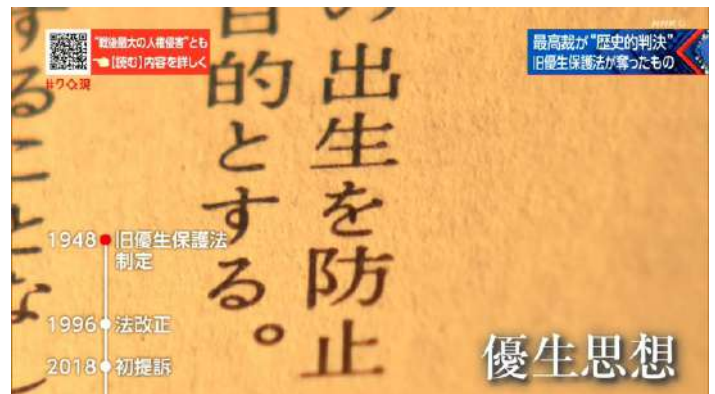 "戦後最大の人権侵害"とも
☚【読む】内容を詳しく
#クロ現
NHK G
最高裁が"歴史的判決"
旧優生保護法が奪ったもの
の出生を防止
目的とする。
することな
1948 旧優生保護法
制定
1996 法改正
2018 初提訴
優生思想